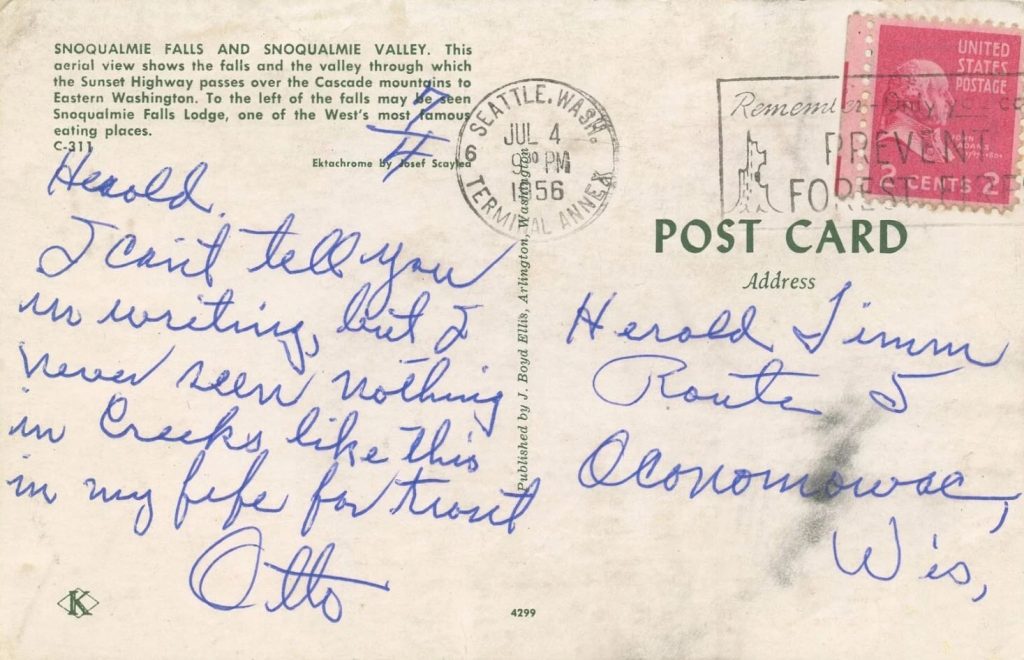 SNOQUALMIE FALLS AND SNOQUALMIE VALLEY. This
aerial view shows the falls and the valley through which
the Sunset Highway passes over the Cascade mountains to
Eastern Washington. To the left of the falls may be seen
Snoqualmie Falls Lodge, one of the West's most famous
eating places.
C-311
Ektachrome by Josef Scaylea
7/4
Herold.
I can't tell you
in writing, but I
never seen nothing
in Creeks like this
in my life for trout
Otto
K
4299
Published by J. Boyd Ellis, Arlington, Washington
SEATTLE, WASH.
JUL 4
9 30 PM
1956
6
TERMINAL ANNEX
Remember-Only you
PREVENT
FOREST
UNITED
STATES
POSTAGE
JOHN
ADAMS
2 CENTS 2
POST CARD
Address
Herold Timm
Route 5
Oconomowoc,
Wis,